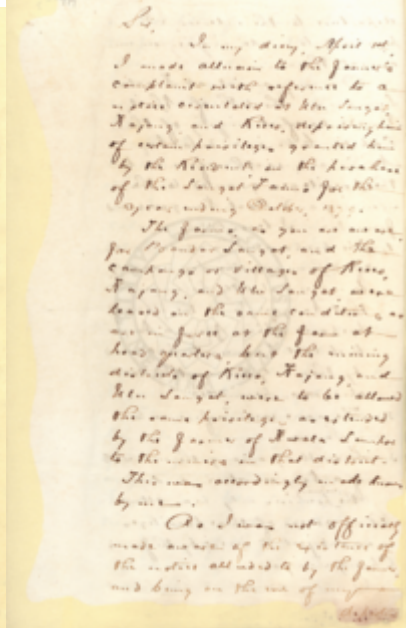 Sir,
In my diary, April 1st,
I made allusion to the Farmer's
complaint with reference to a
notice circulated at Ulu Langat,
Kajang and Reco, depriving him
of certain privileges granted him
by the Resident on the purchase
of the Langat Farms for the
year ending
The Farms, as you are aware,
for Bandar Langat, and the
campongs or villages of Reco,
Kajang, and Ulu Langat, were
leased on the same conditions as
are in force at the Farm at
head quarters, but the mining
districts of Reco, Kajang, and
Ulu Langat, were to be allowed
the same privileges as extended
by the Farmer of Kwala Lumpor
to the miners in that district.
This was accordingly made known
by me.
As I was not officially
made aware of the existence of
the notice alluded to by the Farmer,
and being on the eve of my